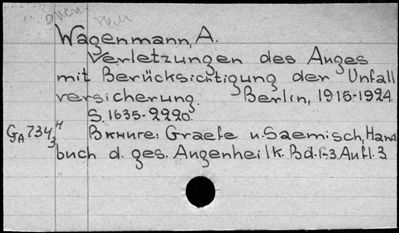 Wagenmann, A.
Verletzungen des Auges
mit Berücksichtigung der Unfall
versicherung. Berlin, 1915-1924.
S. 1635-2220.
GA 734/3 H В книге: Graefe u. Saemisch, Hand
buch d. ges. Augenheilk. Bd. 1-3. Aufl. 3